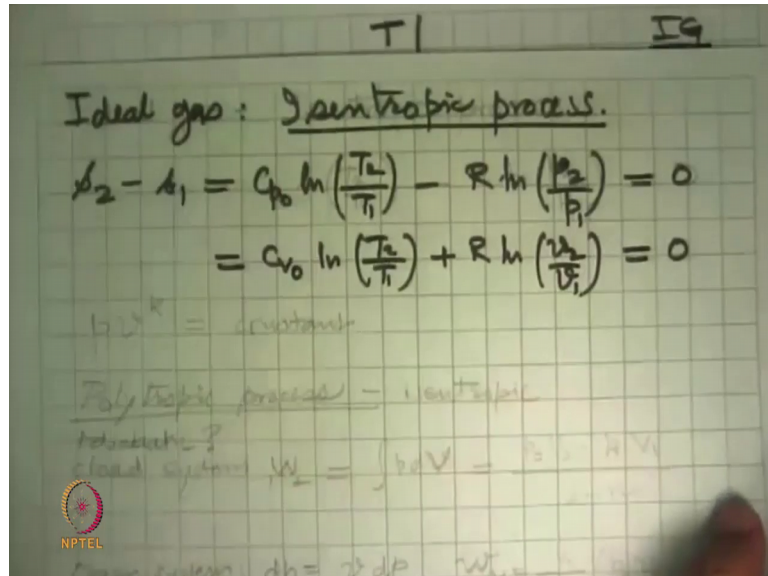 T1 IG
Ideal gas: Isentropic process.
s₂ - s₁ = Cp₀ ln (T₂/T₁) - R ln (p₂/p₁) = 0
= Cv₀ ln (T₂/T₁) + R ln (v₂/v₁) = 0
pv^k = constant
Polytropic process - isentropic
closed system, W = ∫pdV =
dh = v dp
NPTEL